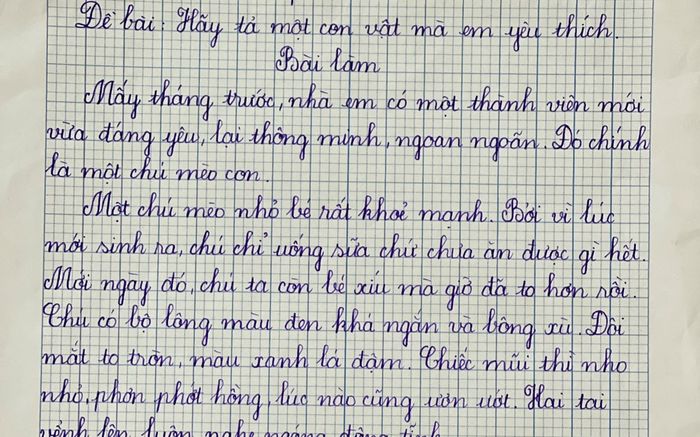 Đề bài: Hãy tả một con vật mà em yêu thích.
Bài làm
Mấy tháng trước, nhà em có một thành viên mới
vừa đáng yêu, lại thông minh, ngoan ngoãn. Đó chính
là một chú mèo con.
Một chú mèo nhỏ bé rất khoẻ mạnh. Bởi vì lúc
mới sinh ra, chú chỉ uống sữa chứ chưa ăn được gì hết.
Mới ngày đó, chú ta còn bé xíu mà giờ đã to hơn rồi.
Chú có bộ lông màu đen khá ngắn và bông xù. Đôi
mắt to tròn, màu xanh lá đậm. Chiếc mũi thì nho
nhỏ, phơn phớt hồng, lúc nào cũng ươn ướt. Hai tai
vểnh lên luôn nghe ngóng động tĩnh